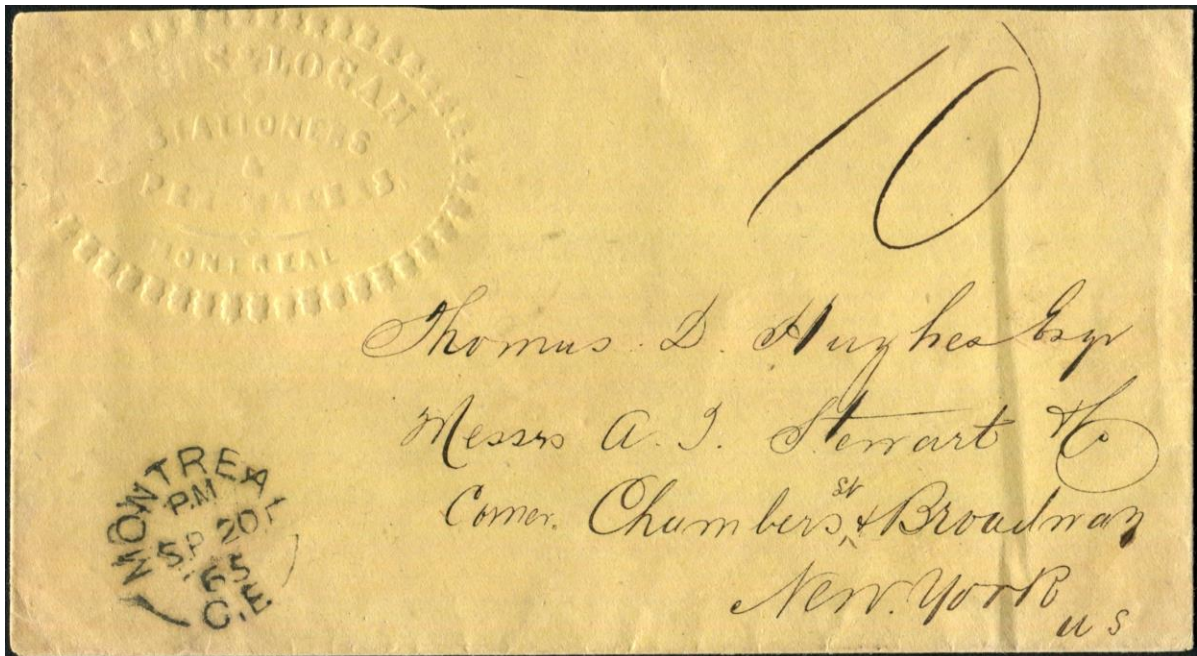 & LOGAN
STATIONERS
&
MONTREAL
10
Thomas D. Hughes Esqr
Messrs A. T. Stewart & Co
Corner Chambers St & Broadway
New York
U S
MONTREAL
P.M
SP 20
65
C.E